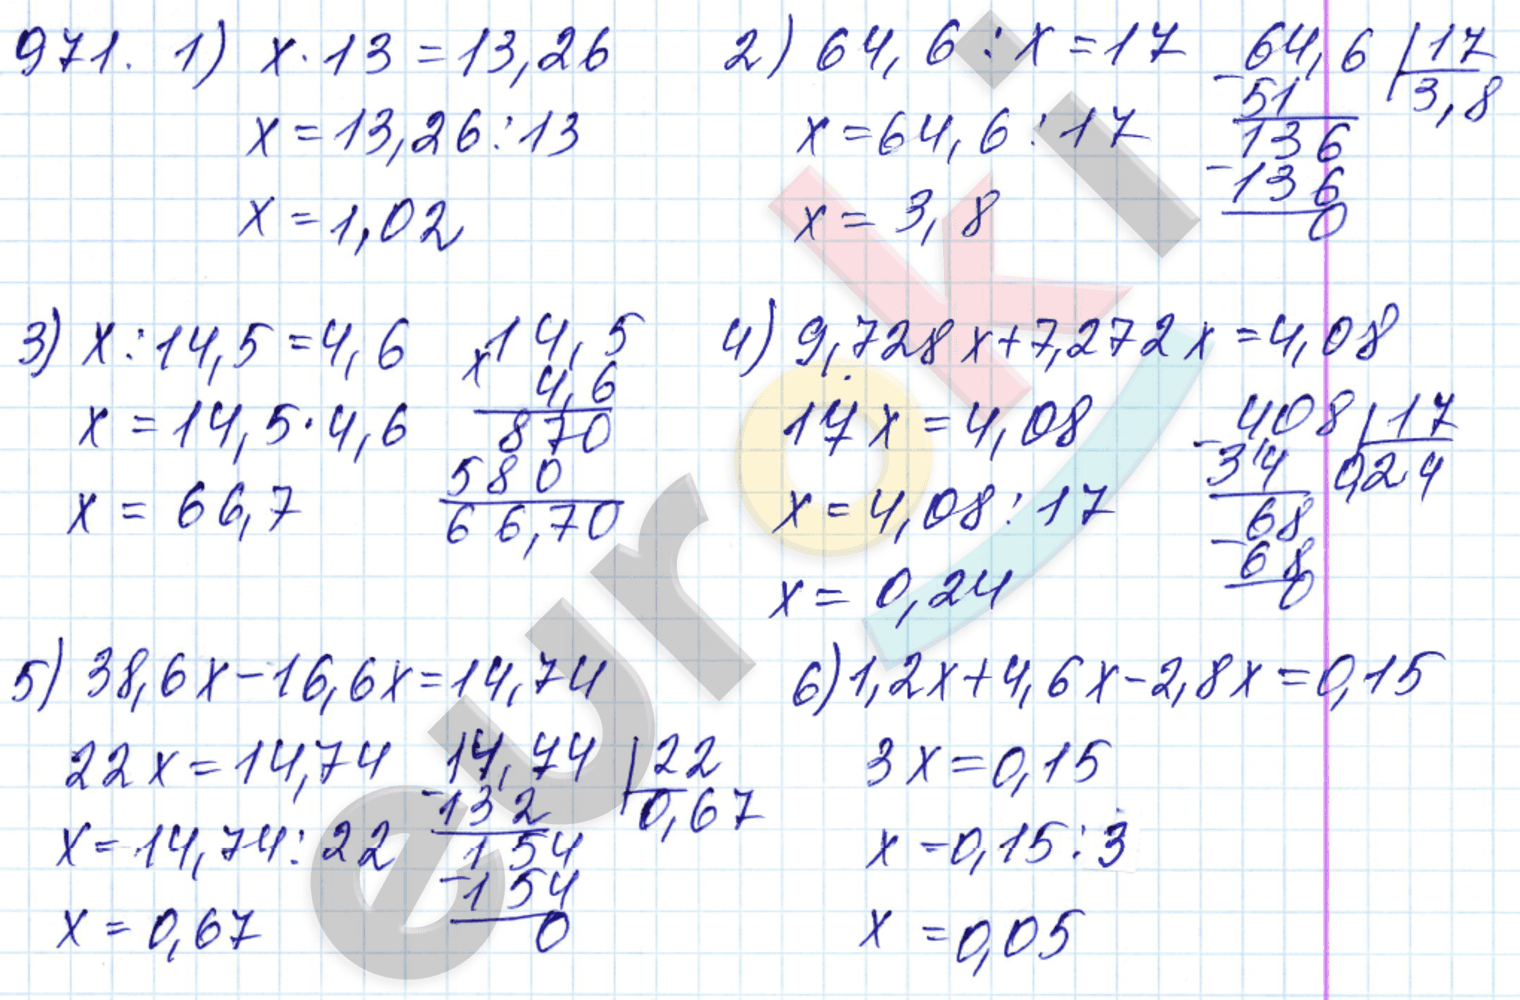 971. 1) x · 13 = 13,26
x = 13,26 : 13
x = 1,02
2) 64,6 : x = 17
x = 64,6 : 17
x = 3,8
64,6 | 17
- 51 3,8
136
- 136
0
3) x : 14,5 = 4,6
x = 14,5 · 4,6
x = 66,7
14,5
x 4,6
870
580
66,70
4) 9,728x + 7,272x = 4,08
17x = 4,08
x = 4,08 : 17
x = 0,24
408 | 17
- 34 0,24
68
- 68
0
5) 38,6x - 16,6x = 14,74
22x = 14,74
x = 14,74 : 22
x = 0,67
14,74 | 22
- 132 0,67
154
- 154
0
6) 1,2x + 4,6x - 2,8x = 0,15
3x = 0,15
x = 0,15 : 3
x = 0,05
euroki